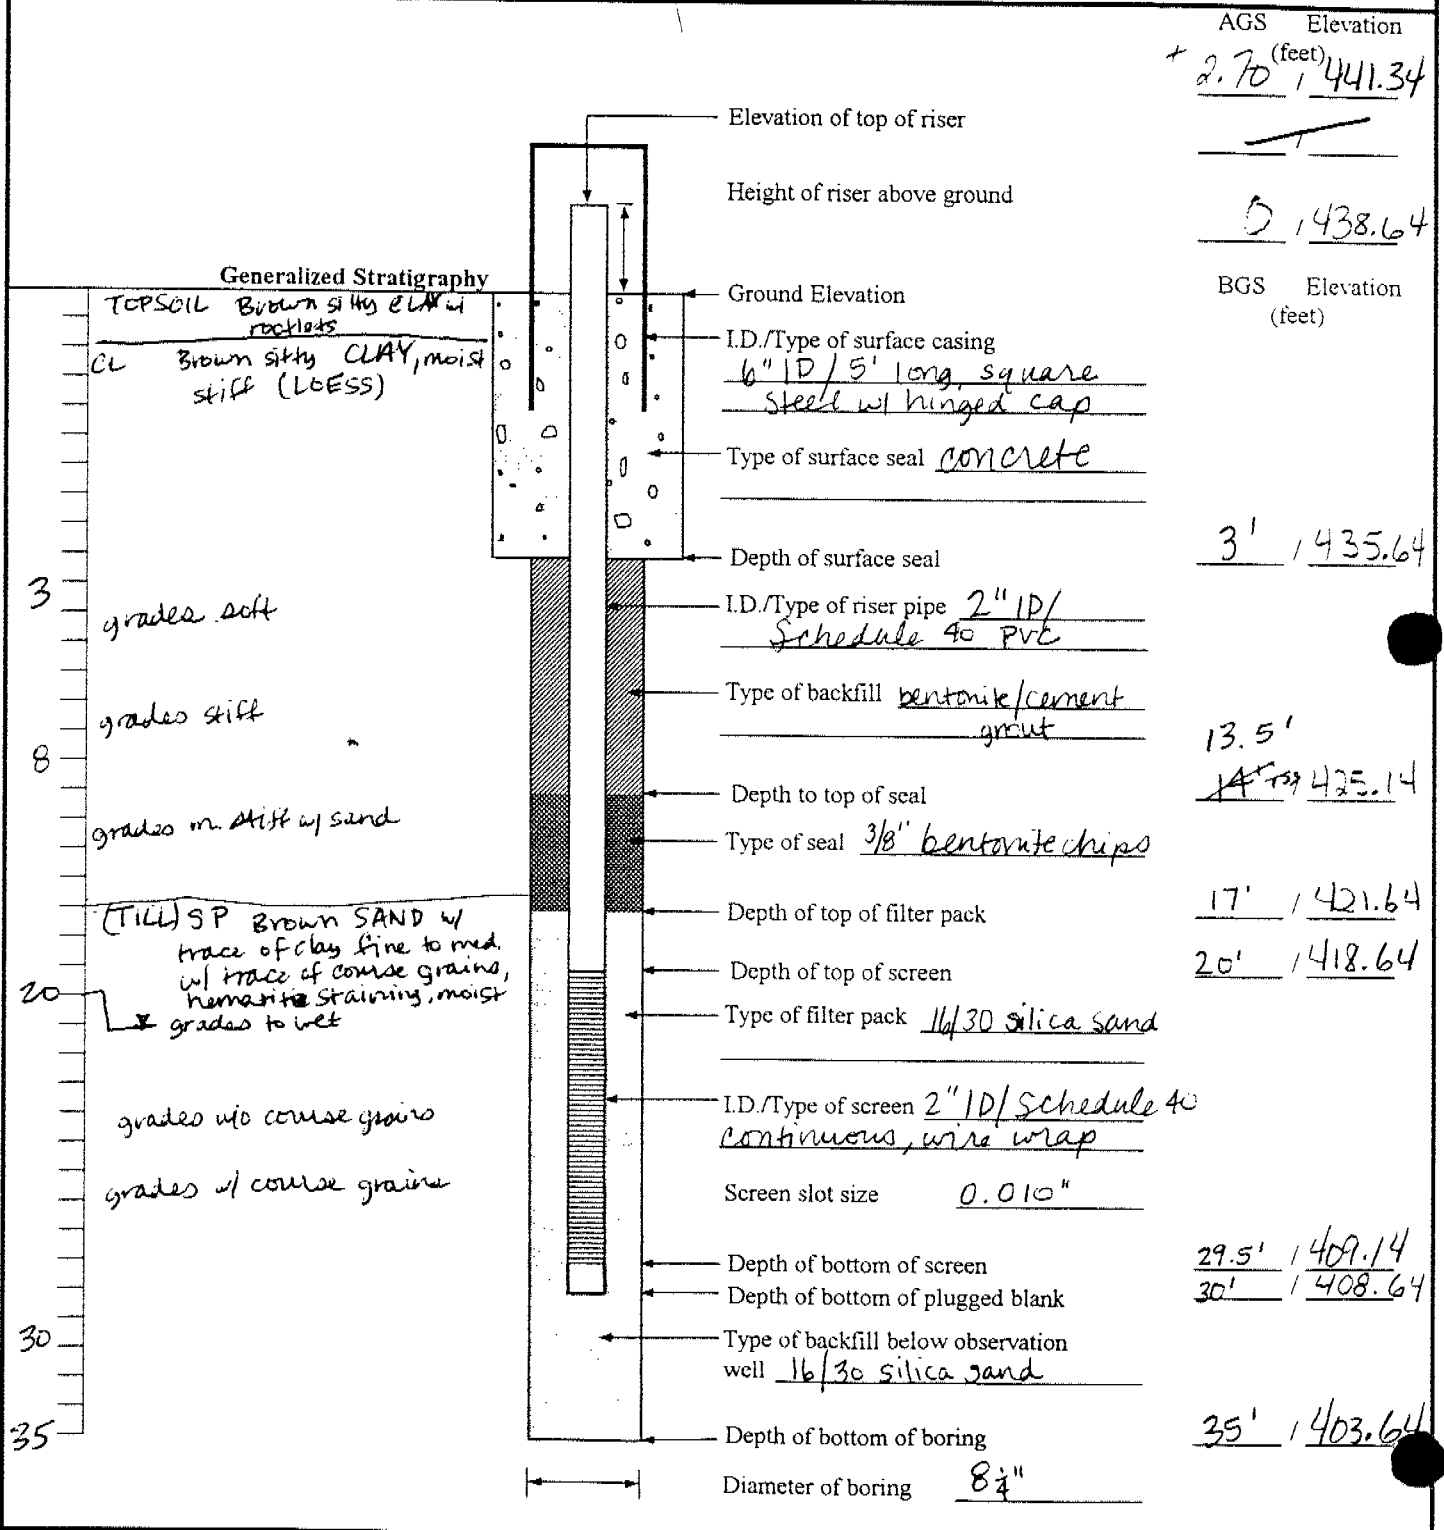 AGS Elevation
(feet)
+ 2.70 / 441.34
Elevation of top of riser
/
Height of riser above ground
0 / 438.64
Generalized Stratigraphy
Ground Elevation
BGS Elevation
(feet)
TOPSOIL Brown silty CLAY w/
rootlets
I.D./Type of surface casing
6" ID / 5' long, square
steel w/ hinged cap
CL Brown silty CLAY, moist
stiff (LOESS)
Type of surface seal concrete
Depth of surface seal
3' / 435.64
3
grades soft
I.D./Type of riser pipe 2" ID/
Schedule 40 PVC
Type of backfill bentonite/cement
grout
grades stiff
8
13.5'
Depth to top of seal
14' / 425.14
grades m. stiff w/ sand
Type of seal 3/8" bentonite chips
Depth of top of filter pack
17' / 421.64
(TILL) SP Brown SAND w/
trace of clay fine to med.
w/ trace of course grains,
hematite staining, moist
Depth of top of screen
20' / 418.64
20
grades to wet
Type of filter pack 16/30 silica sand
I.D./Type of screen 2" ID/ Schedule 40
continuous, wire wrap
grades w/o course grains
grades w/ course grains
Screen slot size 0.010"
Depth of bottom of screen
29.5' / 409.14
Depth of bottom of plugged blank
30' / 408.64
30
Type of backfill below observation
well 16/30 silica sand
35
Depth of bottom of boring
35' / 403.64
Diameter of boring 8 1/4"